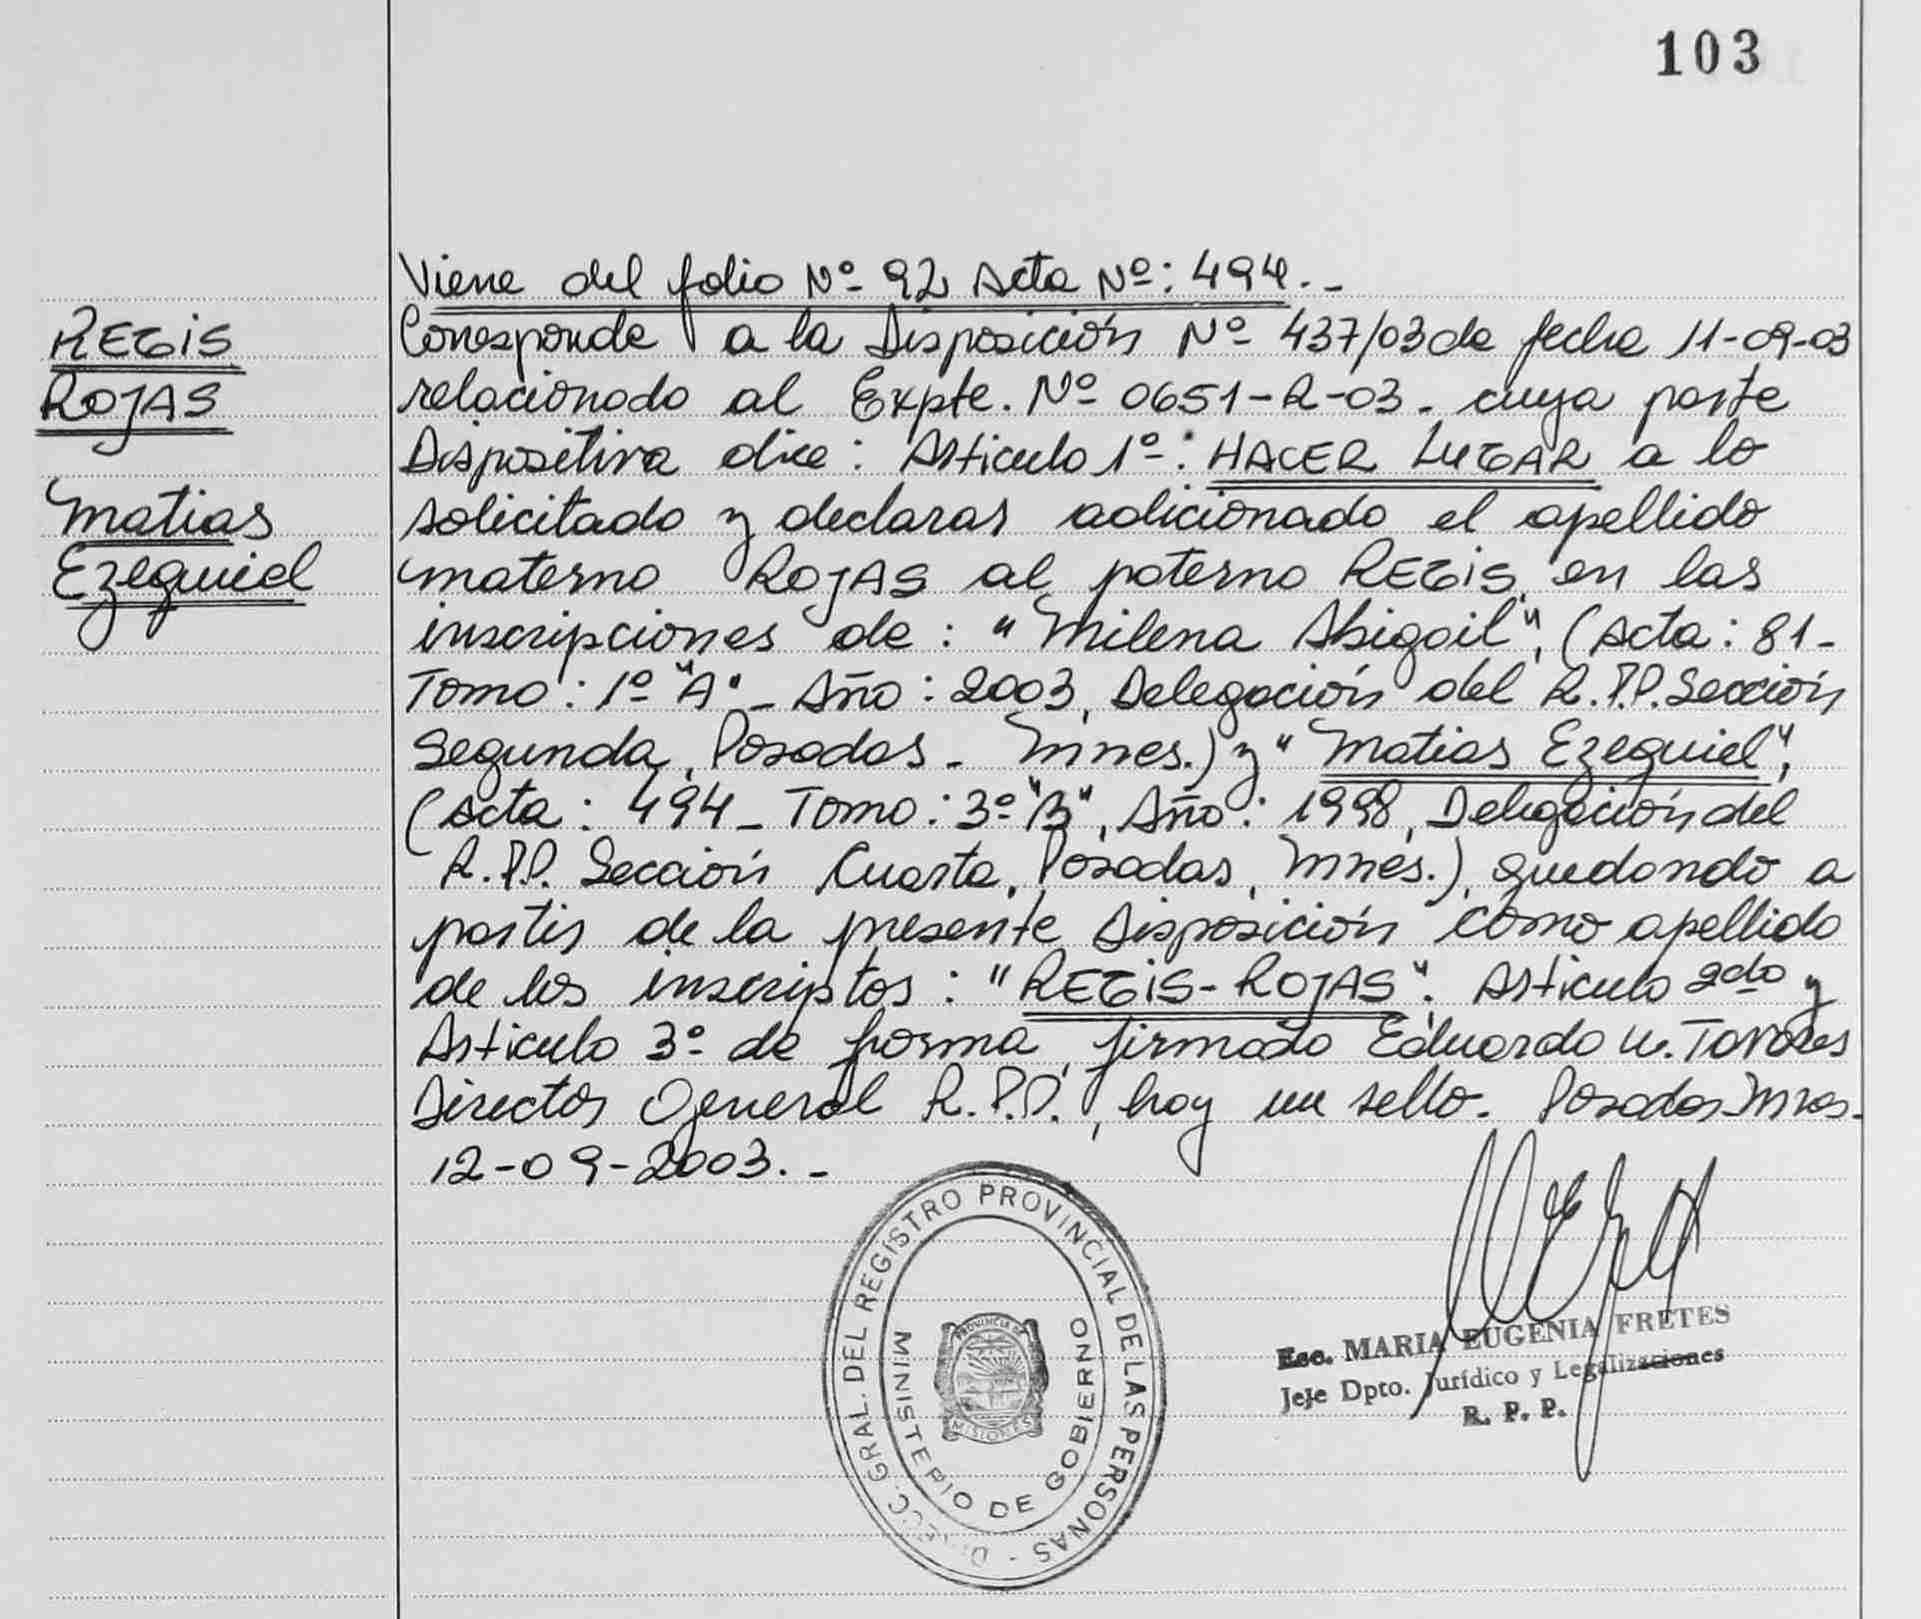 103
REGIS
ROJAS
Matias
Ezequiel
Viene del folio Nº 92 Acta Nº: 494.-
Corresponde a la Disposición Nº 437/03 de fecha 11-09-03
relacionado al Expte. Nº 0651-R-03. cuya parte
Dispositiva dice: Articulo 1º: HACER LUGAR a lo
solicitado y declarar adicionado el apellido
materno ROJAS al paterno REGIS, en las
inscripciones de: "Milena Abigail", (Acta: 81-
Tomo: 1º "A" - Año: 2003, Delegación del R.P.P. Sección
Segunda, Posadas - Mnes.) y "Matias Ezequiel",
(Acta: 494 - Tomo: 3º "B", Año: 1998, Delegación del
R.P.P. Sección Cuarta, Posadas, Mnes.), quedando a
partir de la presente Disposición como apellido
de los inscriptos: "REGIS-ROJAS". Articulo 2do y
Articulo 3º de forma, firmado Eduardo Tavares
Director General R.P.P., hay un sello. Posadas Mnes.
12-09-2003.-
DIRECC. GRAL. DEL REGISTRO PROVINCIAL DE LAS PERSONAS -
MINISTERIO DE GOBIERNO
PROVINCIA DE
MISIONES
Esc. MARIA EUGENIA FRETES
Jefe Dpto. Jurídico y Legalizaciones
R. P. P.